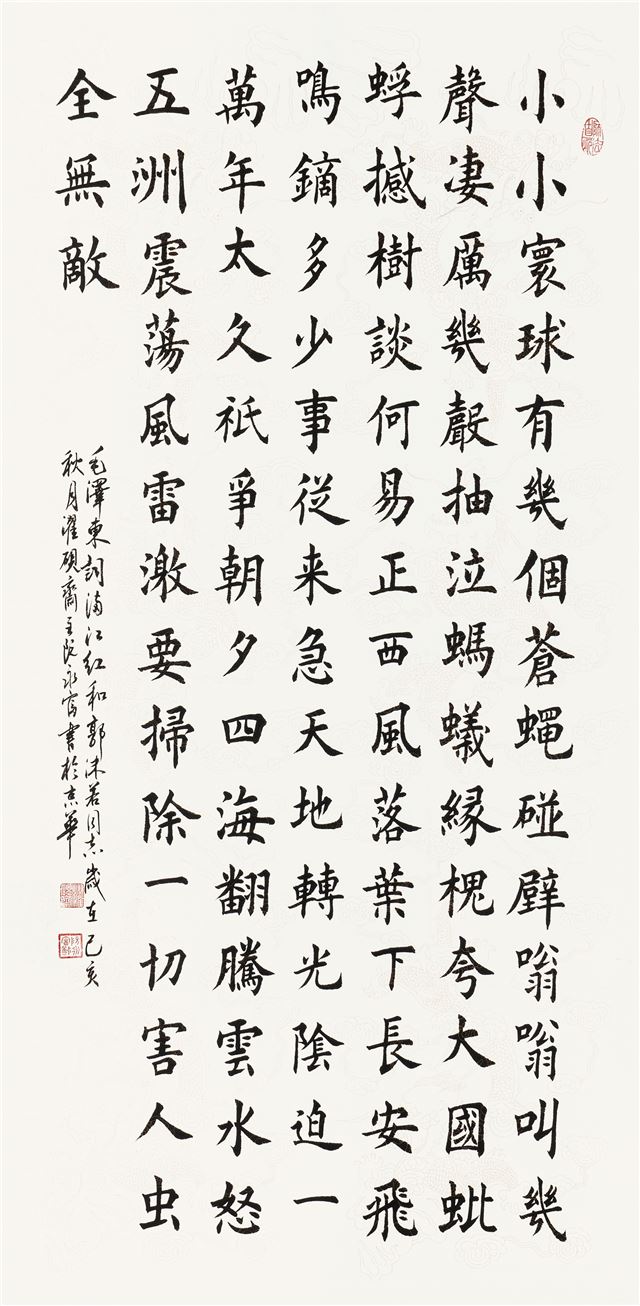 小小寰球有幾個蒼蠅碰壁嗡嗡叫幾
聲凄厲幾殸抽泣螞蟻緣槐夸大國蚍
蜉撼樹談何易正西風落葉下長安飛
鳴鏑多少事從来急天地轉光陰迫一
萬年太久祇爭朝夕四海翻騰雲水怒
五洲震蕩風雷激要掃除一切害人虫
全無敵
毛澤東詞滿江紅和郭沫若同志歲在己亥
秋月濯硯齋主阮永富書於京華